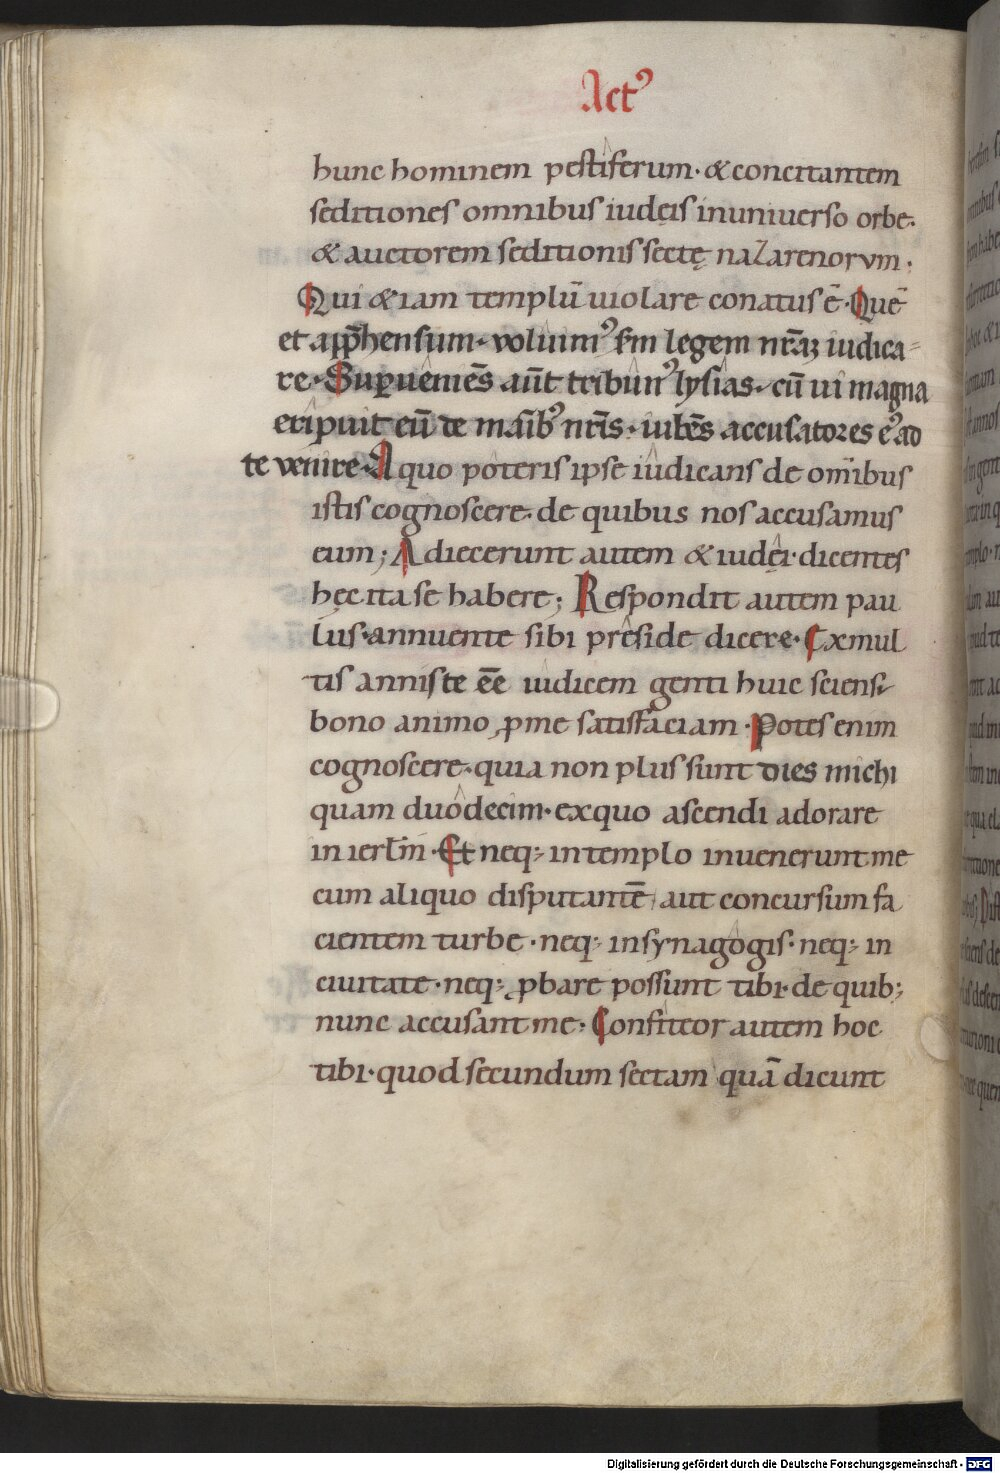 Actꝰ
hunc hominem pestiferum· & concitantem
seditiones omnibus iudęis inuniuerso orbe·
& auctorem seditionis sectę nazarenorvm·
Qui &iam templū uiolare conatus ē· Quē
et app̄hensum· voluimꝰ scḋm legem nr̄aꝫ iudica-
re· Supueniēs aūt tribunꝰ lysias· cū ui magna
eripuit eū de manibꝰ nr̄is· iubēs accusatores eꝰ ad
te venire· A quo poteris ipse iudicans de om̄ibus
istis cognoscere· de quibus nos accusamus
eum; Adiecerunt autem & iudęi· dicentes
hęc ita se habere; Respondit autem pau
lus· annuente sibi preside dicere· Exmul
tis annis te ēē iudicem genti huic sciens·
bono animo ꝓme satisfaciam· Potes enim
cognoscere· quia non plus sunt dies michi
quam duodecim· exquo ascendi adorare
in ierl̄m· Et neq; intemplo inuenerunt me
cum aliquo disputantē aut concursum fa
cientem turbe· neq; insynagogis· neq; in
ciuitate· neq; ꝓbare possunt tibi· de quib;
nunc accusant me· Confiteor autem hoc
tibi· quod secundum sectam quā dicunt
Digitalisierung gefördert durch die Deutsche Forschungsgemeinschaft - DFG